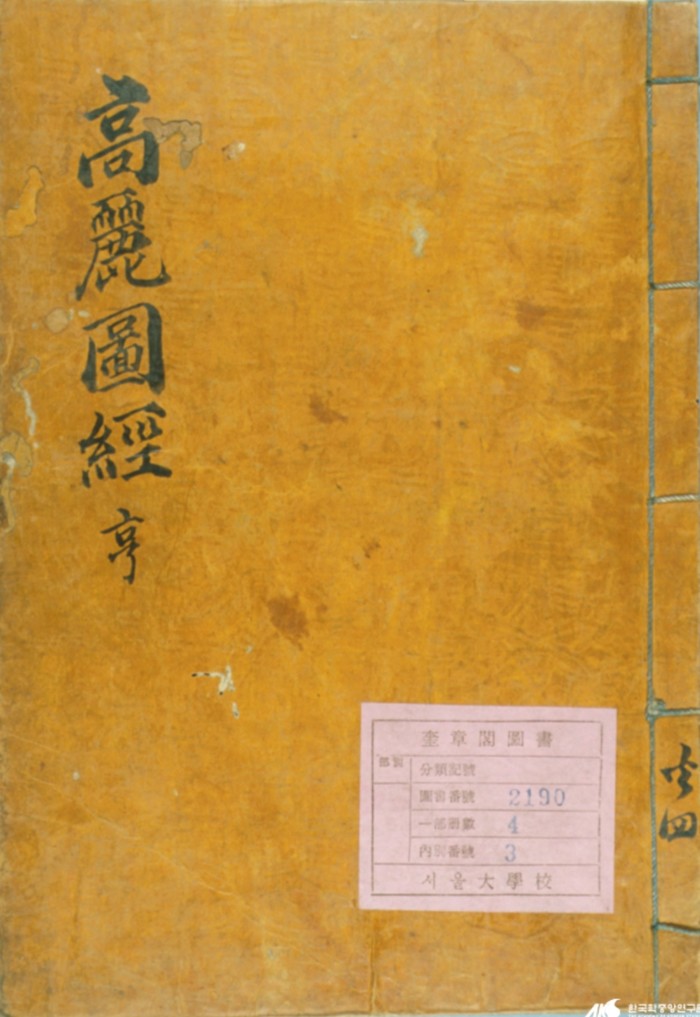 高麗圖經 亨
奎章閣圖書
部別
分類記號
圖書番號 2190
一部冊數 4
內別番號 3
서울大學校
共四
한국학중앙연구